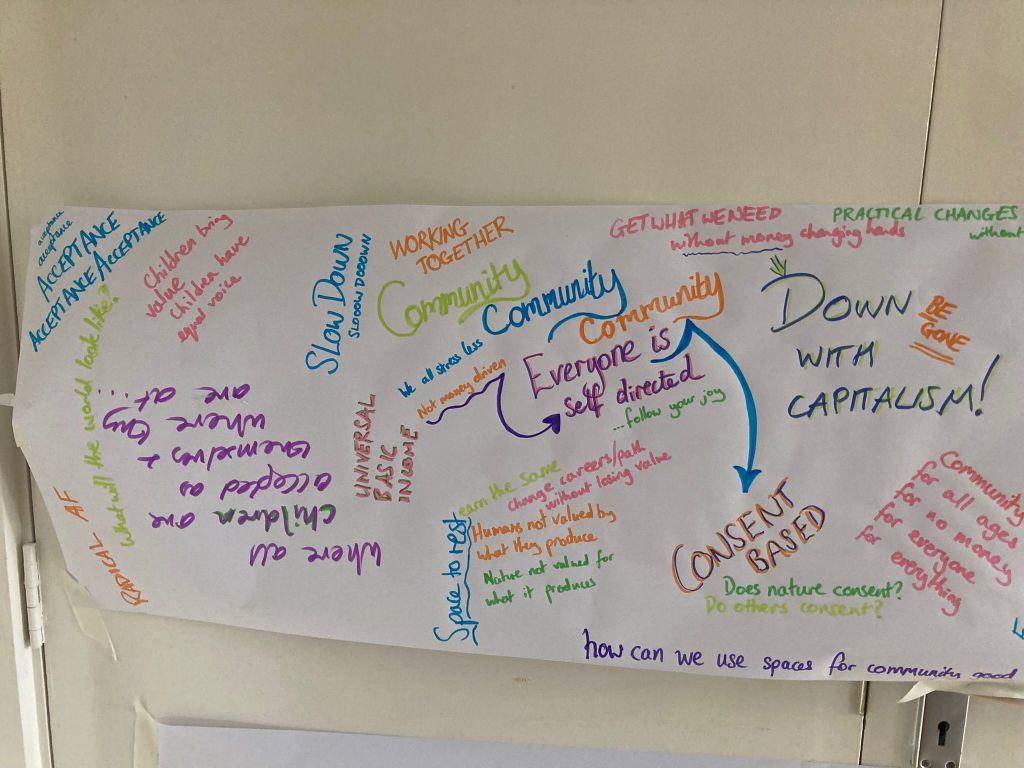 acceptance
acceptance
ACCEPTANCE
ACCEPTANCE ACCEPTANCE
Children bring
value
children have
equal voice
what will the world look like?
RADICAL AF
where all
children are
accepted as
themselves +
where they
are at...
SLOW DOWN
SLOOOW DOOOWN
WORKING
TOGETHER
Community
Community
Community
We all stress less
Not money driven
Everyone is
self directed
...follow your joy
UNIVERSAL
BASIC
INCOME
GET WHAT WE NEED
without money changing hands
PRACTICAL CHANGES
without
DOWN
WITH
CAPITALISM!
BE
GONE
Space to rest
earn the same
change careers/path
without losing value
Humans not valued by
what they produce
Nature not valued for
what it produces
CONSENT
BASED
Does nature consent?
Do others consent?
Community
for all ages
for no money
for everyone
for everything
how can we use spaces for community good